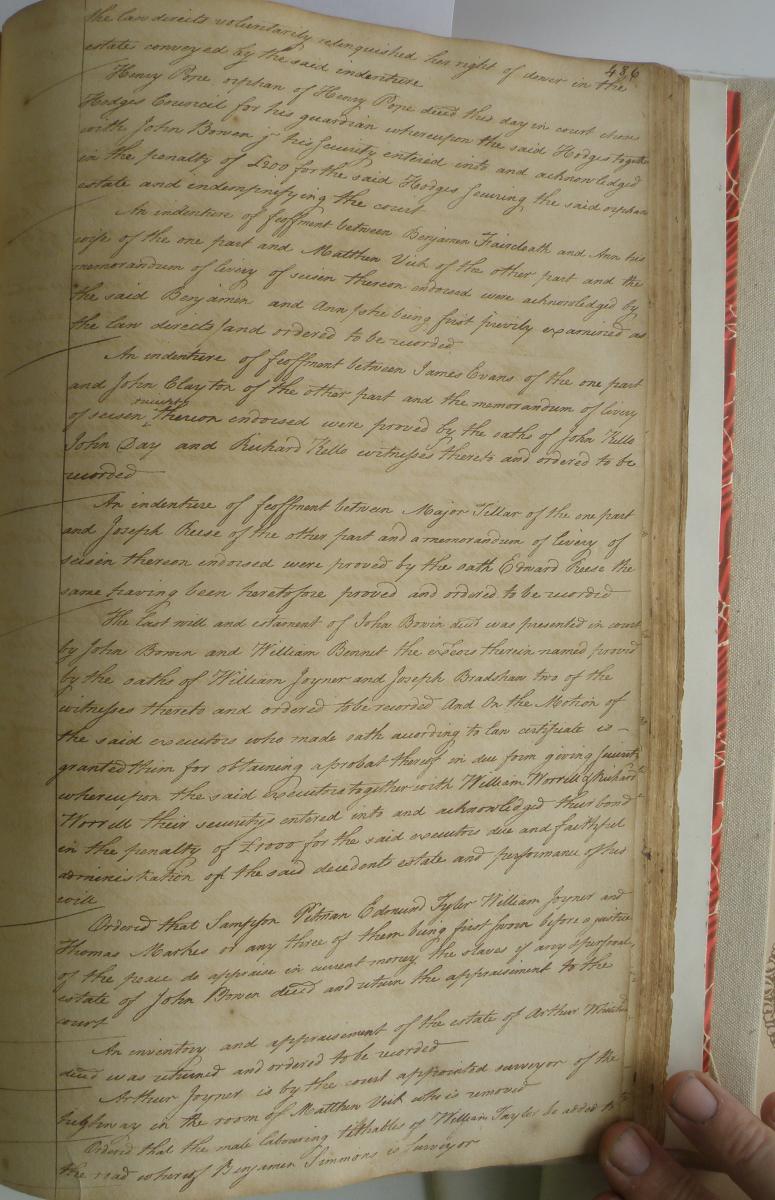 486
the law directs voluntarily relinquished her right of dower in the
estate conveyed by the said indenture
Henry Pope orphan of Henry Pope deced this day in court chose
Hodges Council for his guardian whereupon the said Hodges together
with John Bowen jr his security entered into and acknowledged
in the penalty of £200 for the said Hodges securing the said orphans
estate and indempnifying the court
An indenture of feoffment between Benjamen Faircloath and Ann his
wife of the one part and Matthew Vick of the other part and the
memorandum of livery of seisen thereon endorsed were acknowledged by
the said Benjamen and Ann /she being first privily examined as
the law directs/ and ordered to be recorded
An indenture of feoffment between James Evans of the one part
and John Clayton of the other part and the memorandum of livery
of seisen thereon endorsed were proved by the oaths of John Kello
John Day and Richard Kello witnesses thereto and ordered to be
recorded
An indenture of feoffment between Major Tillar of the one part
and Joseph Reese of the other part and a memorandum of livery of
seisin thereon endorsed were proved by the oath Edward Reese the
same having been heretofore proved and ordered to be recorded
The last will and estament of John Bowin decd was presented in court
by John Bowen and William Bennet the exors therein named proved
by the oaths of William Joyner and Joseph Bradshaw two of the
witnesses thereto and ordered to be recorded And On the Motion of
the said executors who made oath according to law certificate is
granted them for obtaining a probat thereof in due form giving security
whereupon the said executors together with William Worrell & Richard
Worrell their securitys entered into and acknowledged their bond
in the penalty of £1000 for the said executors due and faithful
administration of the said decedents estate and performance of his
will
Ordered that Sampson Pitman Edmund Tyler William Joyner and
Thomas Markes or any three of them being first sworn before a justice
of the peace do appraise in current money the slaves if any & personal
estate of John Bowen deced and return the appraisment to the
court
An inventory and appraisement of the estate of Arthur
deced was returned and ordered to be recorded
Arthur Joyner is by the court appointed surveyor of the
highway in the room of Matthew Vick who is removed
Ordered that the male labouring tithables of William Taylor be added to
the road whereof Benjamen Simmons is surveyor